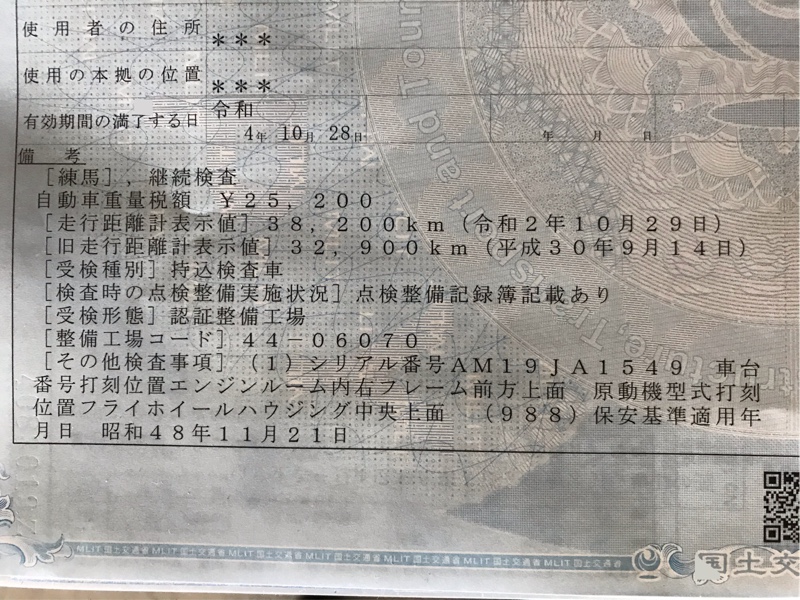 使用者の住所 ＊＊＊
使用の本拠の位置 ＊＊＊
有効期間の満了する日 令和 4年 10月 28日 年 月 日
備考
［練馬］，継続検査
自動車重量税額 ￥２５，２００
［走行距離計表示値］３８，２００ｋｍ（令和２年１０月２９日）
［旧走行距離計表示値］３２，９００ｋｍ（平成３０年９月１４日）
［受検種別］持込検査車
［検査時の点検整備実施状況］点検整備記録簿記載あり
［受検形態］認証整備工場
［整備工場コード］４４－０６０７０
［その他検査事項］（１）シリアル番号ＡＭ１９ＪＡ１５４９ 車台
番号打刻位置エンジンルーム内右フレーム前方上面 原動機型式打刻
位置フライホイールハウジング中央上面 （９８８）保安基準適用年
月日 昭和４８年１１月２１日
MLIT 国土交通省 MLIT 国土交通省 MLIT 国土交通省 MLIT 国土交通省 MLIT 国土交通省 MLIT 国土交通省 MLIT 国土交通省
国土交